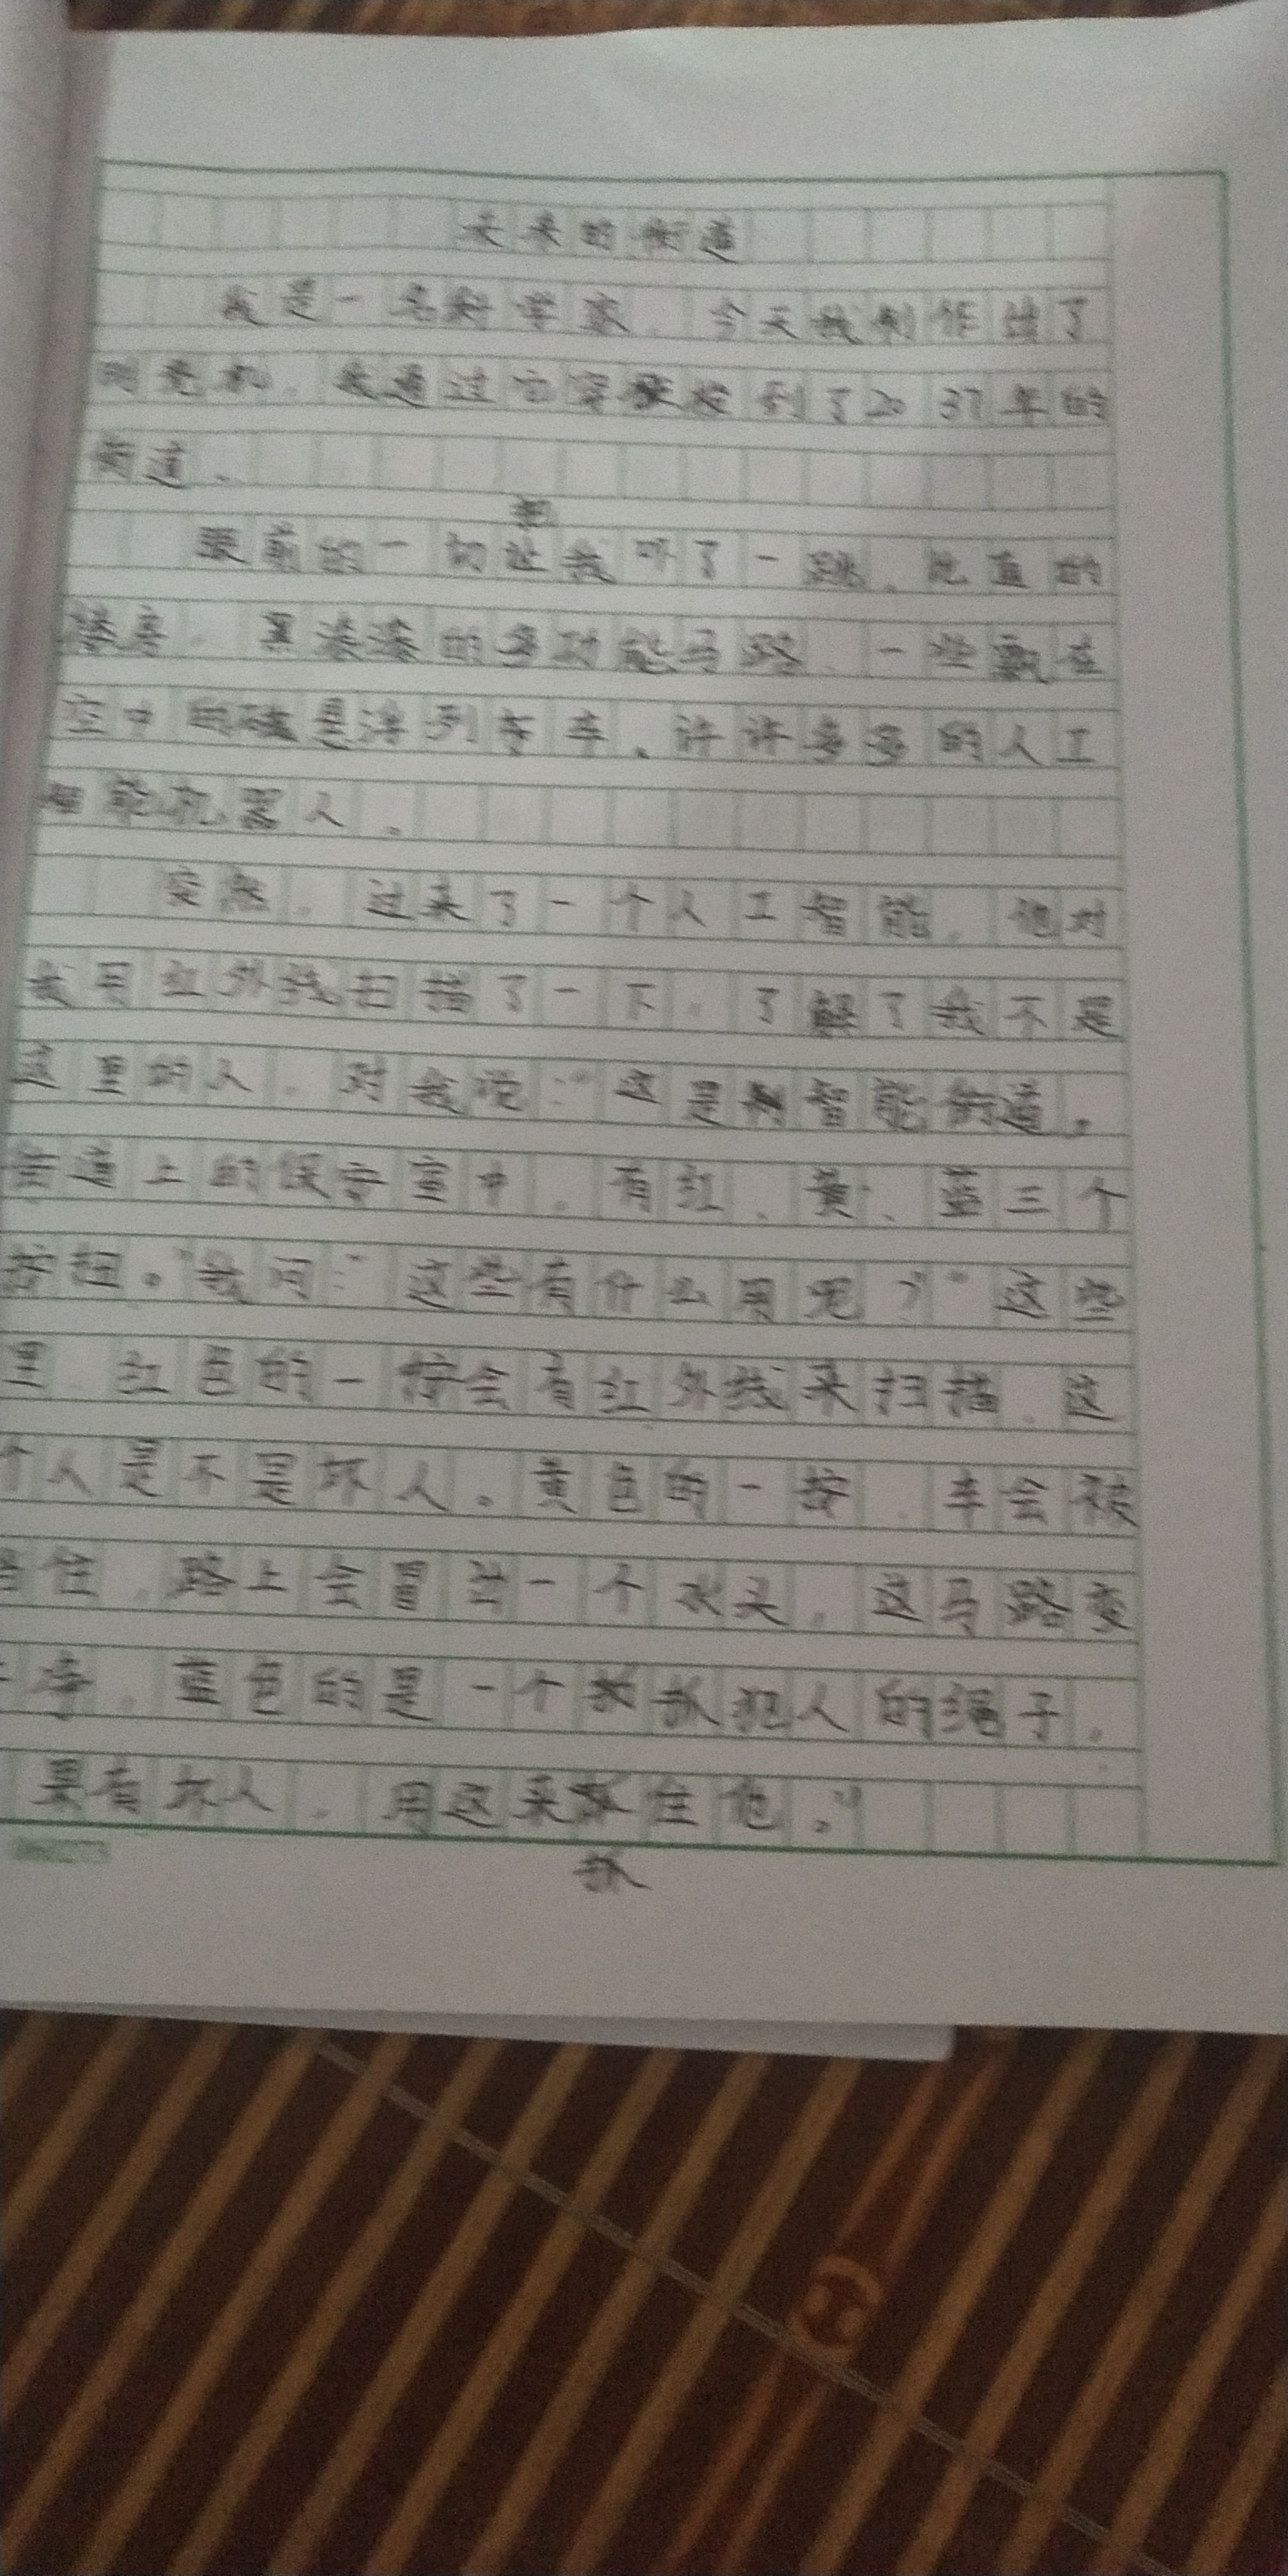 未来的街道
我是一名科学家，今天我制作出了
时光机，我通过它穿梭到了2037年的
街道。
把
眼前的一切让我吓了一跳，比直的
楼房，黑漆漆的多功能马路，一些飘在
空中的磁是浮列车，许许多多的人工
智能机器人。
突然，过来了一个人工智能，他对
我用红外线扫描了一下，了解了我不是
这里的人，对我说：“这是智能街道，
街道上的保安室中，有红、黄、蓝三个
按扭。”我问：“这些有什么用呢？”“这些
里 红色的一按会有红外线来扫描，这
个人是不是坏人。黄色的一按，车会被
住，路上会冒出一个水头，这马路变
净，蓝色的是一个抓犯人的绳子。
果有坏人，用这来抓住他。”
抓